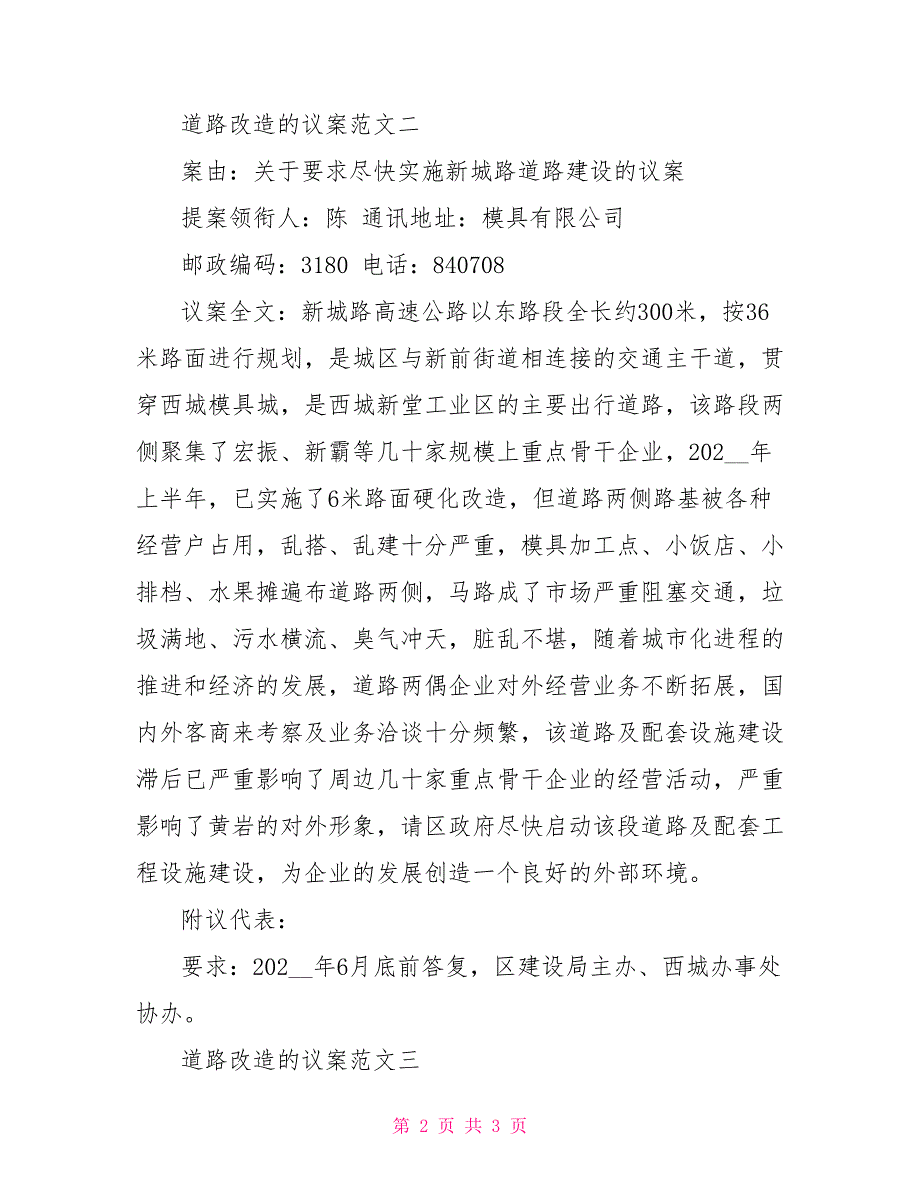 道路改造的议案范文二
案由：关于要求尽快实施新城路道路建设的议案
提案领衔人：陈 通讯地址：模具有限公司
邮政编码：3180 电话：840708
议案全文：新城路高速公路以东路段全长约300米，按36
米路面进行规划，是城区与新前街道相连接的交通主干道，贯
穿西城模具城，是西城新堂工业区的主要出行道路，该路段两
侧聚集了宏振、新霸等几十家规模上重点骨干企业，202__年
上半年，已实施了6米路面硬化改造，但道路两侧路基被各种
经营户占用，乱搭、乱建十分严重，模具加工点、小饭店、小
排档、水果摊遍布道路两侧，马路成了市场严重阻塞交通，垃
圾满地、污水横流、臭气冲天，脏乱不堪，随着城市化进程的
推进和经济的发展，道路两偶企业对外经营业务不断拓展，国
内外客商来考察及业务洽谈十分频繁，该道路及配套设施建设
滞后已严重影响了周边几十家重点骨干企业的经营活动，严重
影响了黄岩的对外形象，请区政府尽快启动该段道路及配套工
程设施建设，为企业的发展创造一个良好的外部环境。
附议代表：
要求：202__年6月底前答复，区建设局主办、西城办事处
协办。
道路改造的议案范文三
第 2 页 共 3 页